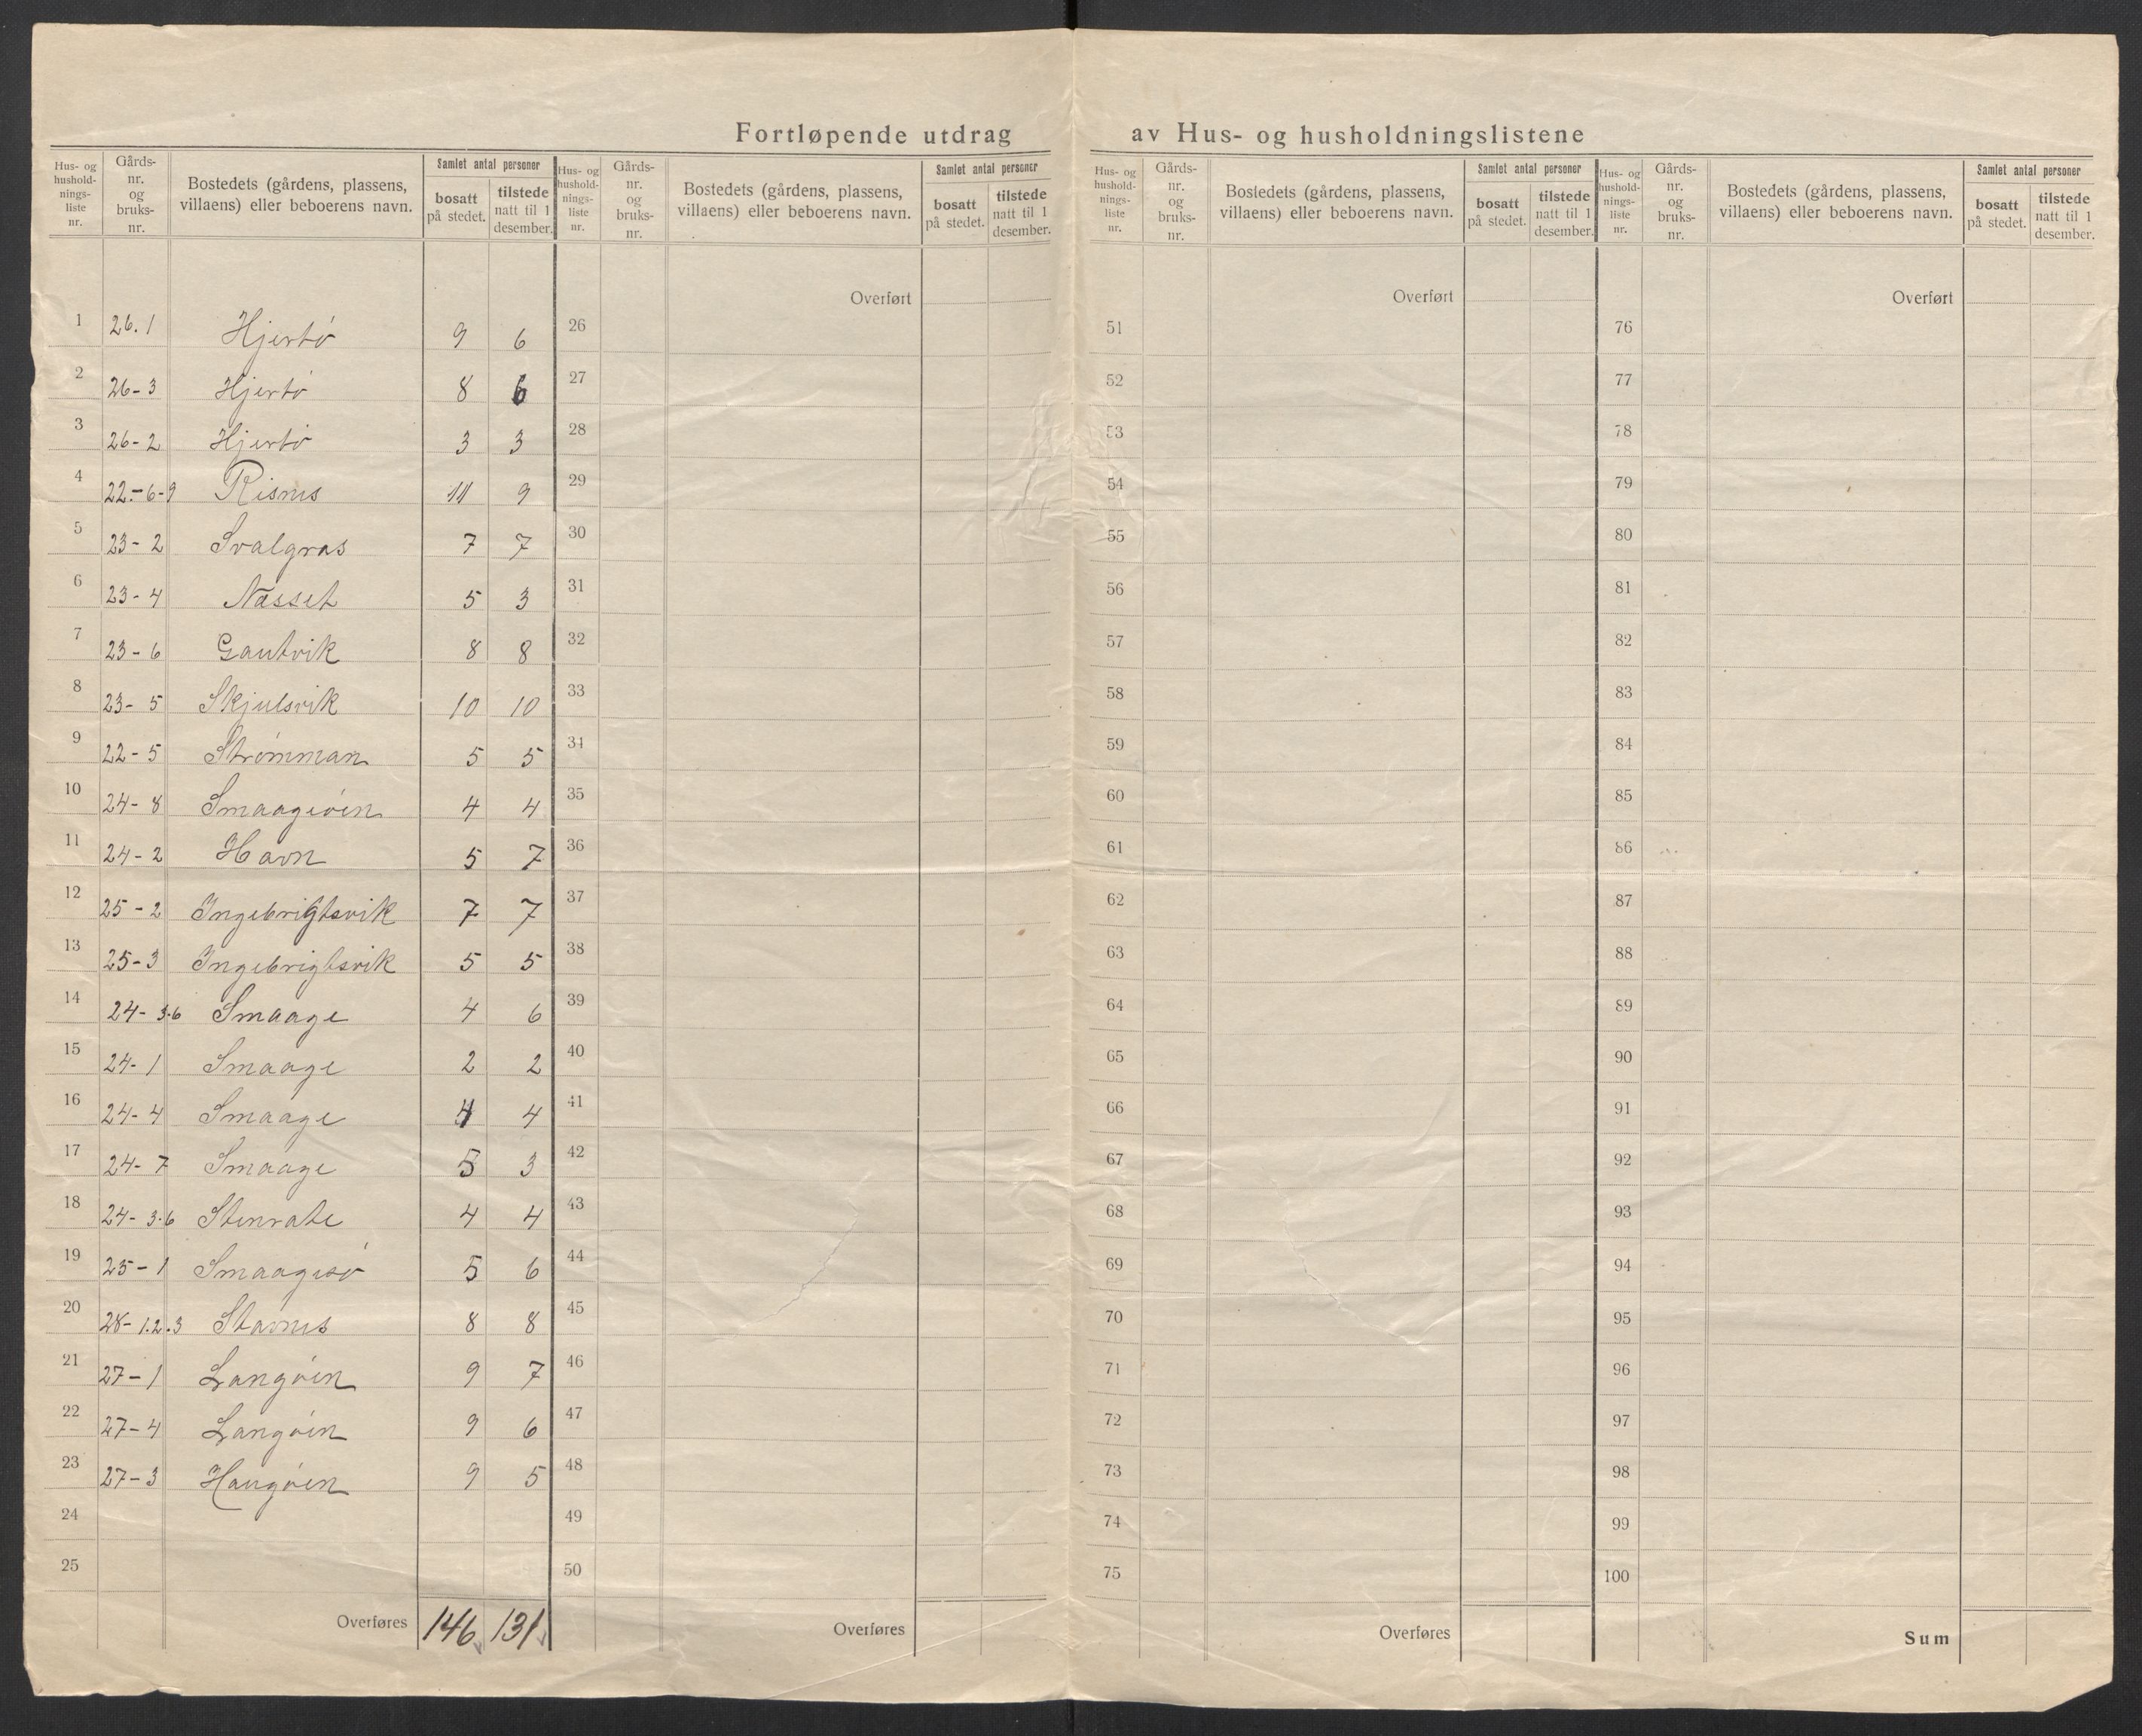 Fortløpende utdrag av Hus- og husholdningslistene
Hus- og hushold-nings-liste nr. | Gårds-nr. og bruks-nr. | Bostedets (gårdens, plassens, villaens) eller beboerens navn. | Samlet antal personer | bosatt på stedet. | tilstede natt til 1 desember.
Hus- og hushold-nings-liste nr. | Gårds-nr. og bruks-nr. | Bostedets (gårdens, plassens, villaens) eller beboerens navn. | Samlet antal personer | bosatt på stedet. | tilstede natt til 1 desember.
Hus- og hushold-nings-liste nr. | Gårds-nr. og bruks-nr. | Bostedets (gårdens, plassens, villaens) eller beboerens navn. | Samlet antal personer | bosatt på stedet. | tilstede natt til 1 desember.
Hus- og hushold-nings-liste nr. | Gårds-nr. og bruks-nr. | Bostedets (gårdens, plassens, villaens) eller beboerens navn. | Samlet antal personer | bosatt på stedet. | tilstede natt til 1 desember.
1 26.1 Hjertø 9 6
2 26-3 Hjertø 8 6
3 26-2 Hjertø 3 3
4 22-6-9 Risnes 11 9
5 23-2 Svalgras 7 7
6 23-4 Næsset 5 3
7 23-6 Gautvik 8 8
8 23-5 Skjulsvik 10 10
9 22-5 Strømman 5 5
10 24-8 Smaageøien 4 4
11 24-2 Havn 5 7
12 25-2 Ingebrigtsvik 7 7
13 25-3 Ingebrigtsvik 5 5
14 24-3.6 Smaage 4 6
15 24-1 Smaage 2 2
16 24-4 Smaage 4 4
17 24-7 Smaage 5 3
18 24-3.6 Stenrabe 4 4
19 25-1 Smaagesø 5 6
20 28-1.2.3 Stavnes 8 8
21 27-1 Langøien 9 7
22 27-4 Langøien 9 6
23 27-3 Haugøien 9 5
24
25
Overføres 146 131
Overført
26
27
28
29
30
31
32
33
34
35
36
37
38
39
40
41
42
43
44
45
46
47
48
49
50
Overføres
Overført
51
52
53
54
55
56
57
58
59
60
61
62
63
64
65
66
67
68
69
70
71
72
73
74
75
Overføres
Overført
76
77
78
79
80
81
82
83
84
85
86
87
88
89
90
91
92
93
94
95
96
97
98
99
100
Sum